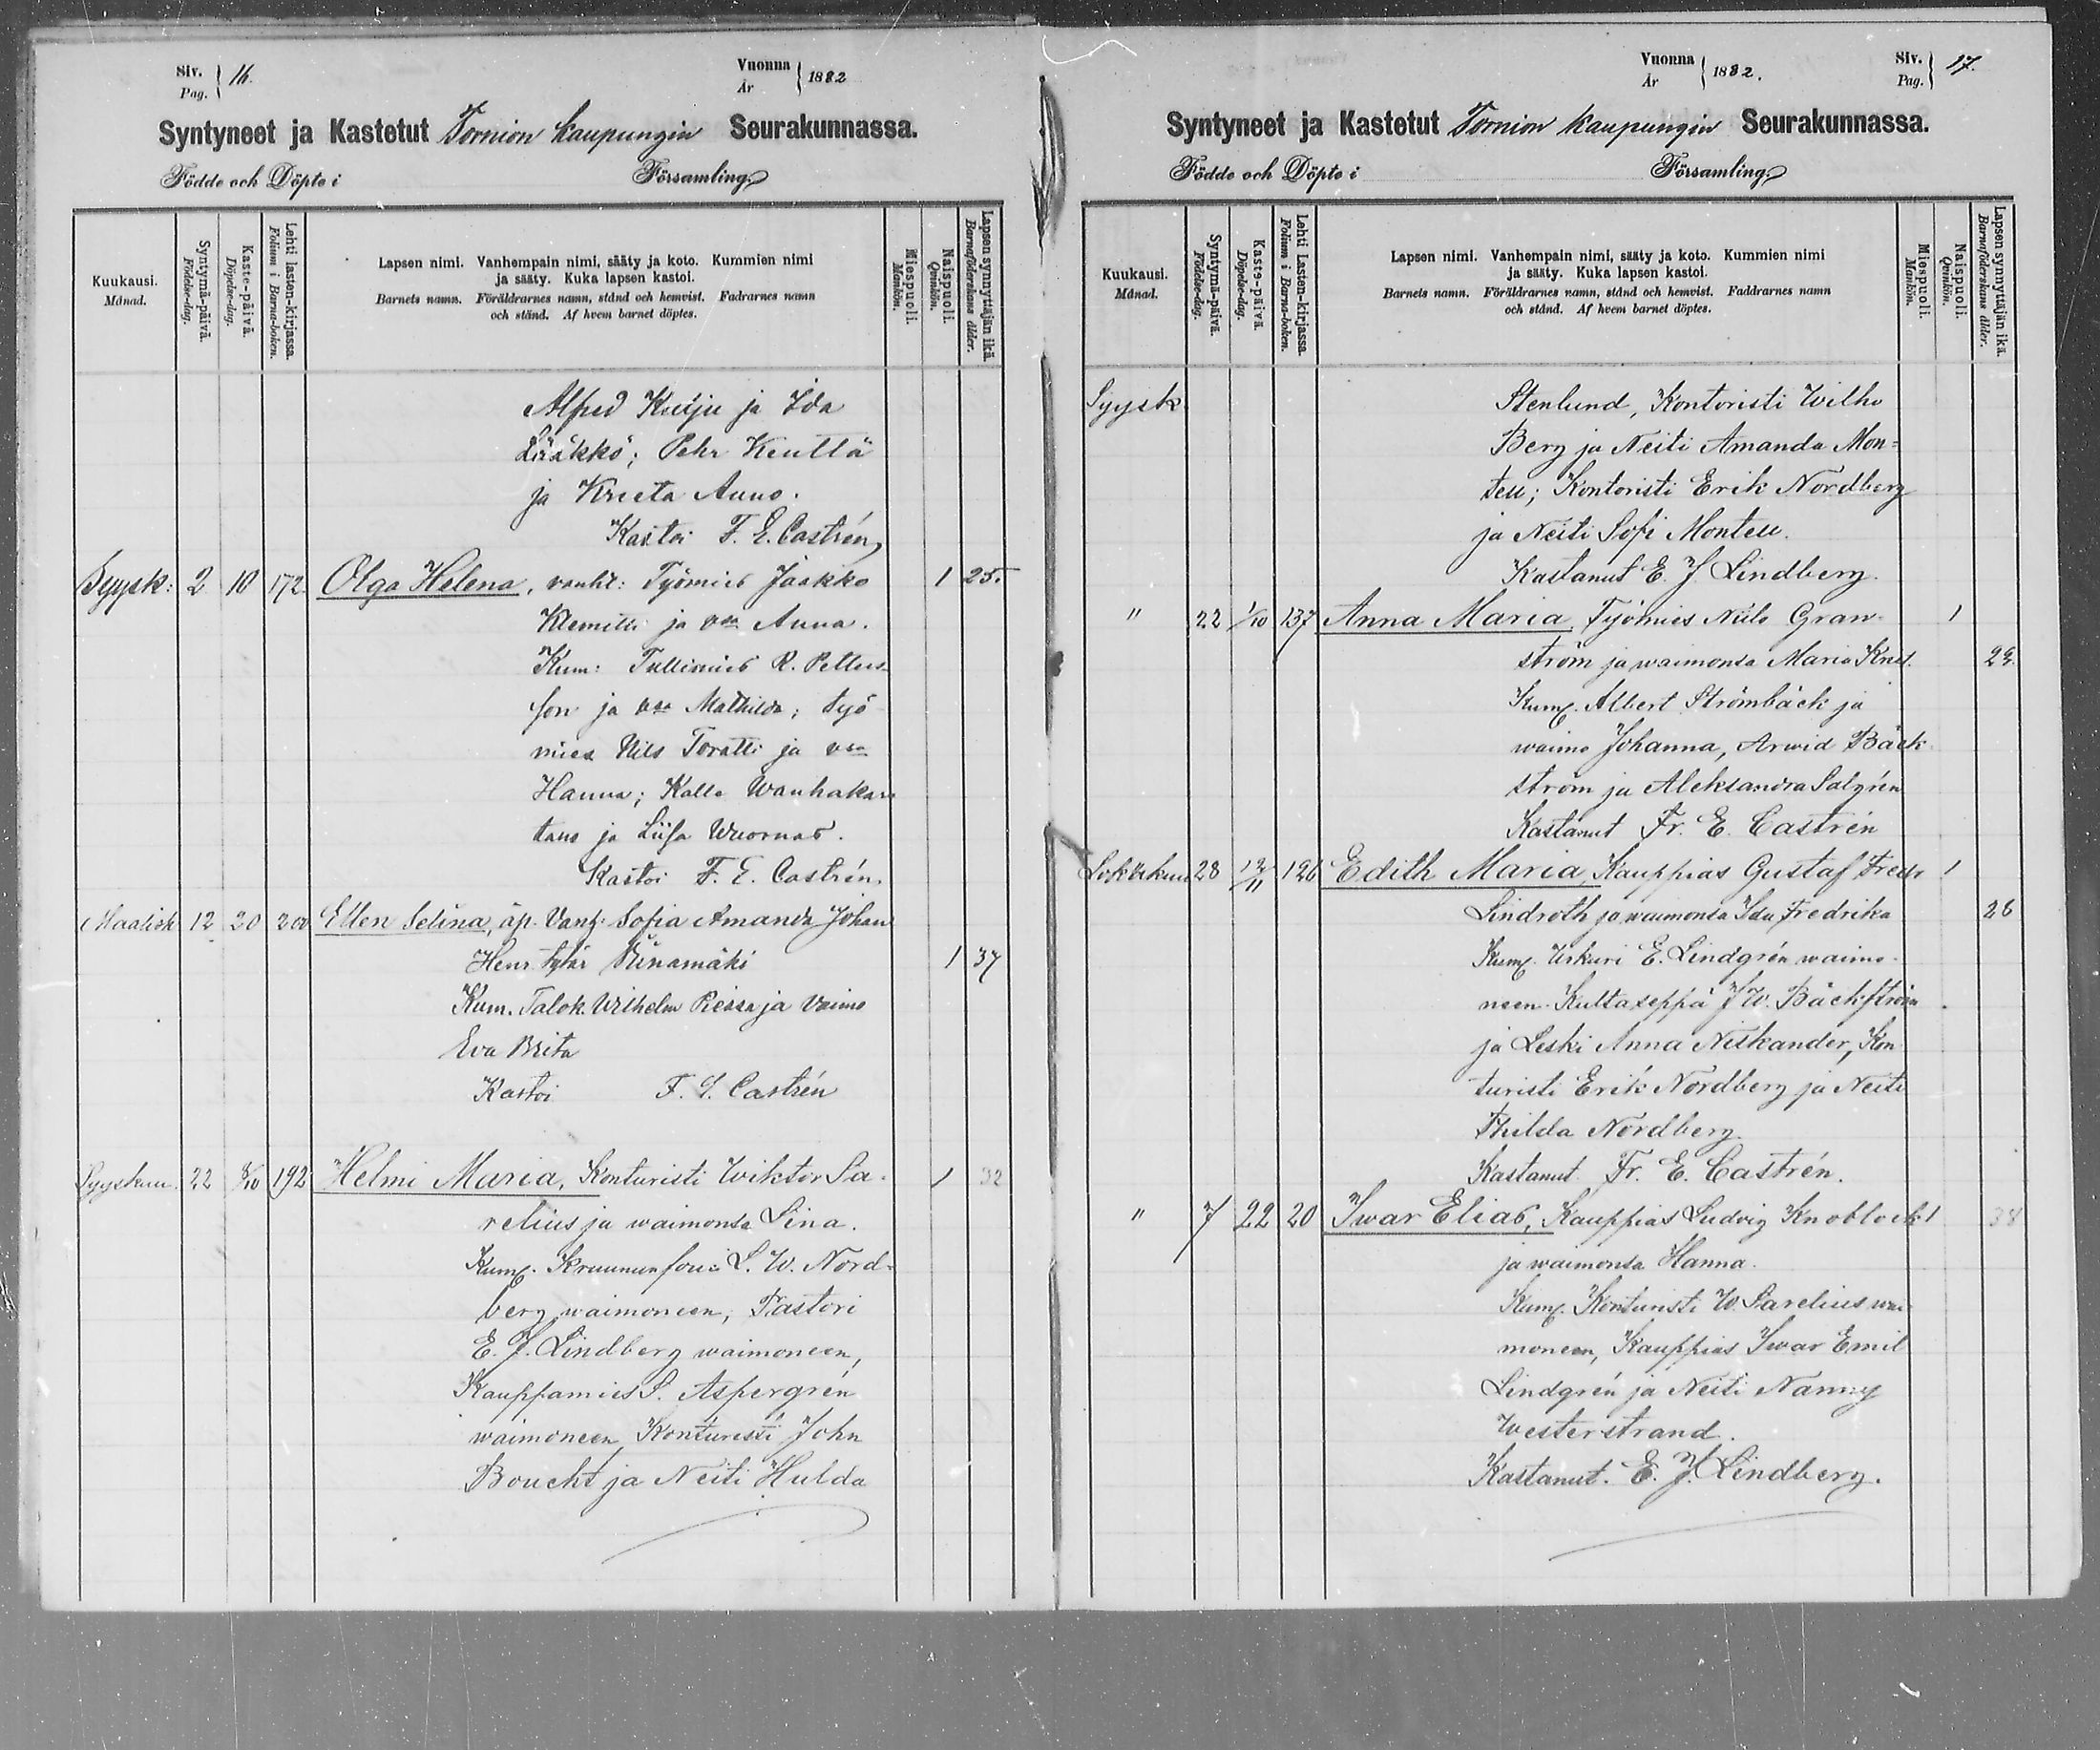 Siv. Pag. 16. Vuonna År 1882
Syntyneet ja Kastetut Tornion kaupungin Seurakunnassa.
Födde och Döpte i Församling
Kuukausi. Månad.
Syntymä-päivä. Födelse-dag.
Kaste-päivä. Döpelse-dag.
Lehti lasten-kirjassa. Folium i Barna-boken.
Lapsen nimi. Vanhempain nimi, sääty ja koto. Kummien nimi
ja sääty. Kuka lapsen kastoi.
Barnets namn. Föräldrarnes namn, stånd och hemvist. Fadrarnes namn
och stånd. Af hvem barnet döptes.
Miespuoli. Mankön.
Naispuoli. Qvinkön.
Lapsen synnyttäjän ikä. Barnaföderskans ålder.
Alfred Keiju ja Ida
Lääkkö; Pehr Kenttä
ja Krieta Auno.
Kastoi F. E. Castrén
Syysk: 2 10 172. Olga Helena, vanht: Työmies Jaakko 1 25.
Klemitti ja vmo Anna.
Kum: Tullimies R. Petters-
son ja vmo Mathilda; työ
mies Nils Toratti ja vmo
Hanna; Kalle Wanhakar
tano ja Liisa Wuornos.
Kastoi F. E. Castrén.
Maalisk 12 20 200 Ellen Selina, äp. Vanh: Sofia Amanda Johan
Henr. tytär Niinamäki 1 37
Kum. Talok. Wilhelm Reissa ja vaimo
Eva Brita
Kastoi F. E. Castrén
Syyskuu. 22 8/10 192 Helmi Maria, Konturisti Wiktor Sa- 1 32
relius ja waimonsa Lina.
Kum. Kruununfouti L. W. Nord-
berg waimoneen, Pastori
E. J. Lindberg waimoneen,
Kauppamies S. Aspegrén
waimoneen, Konturisti John
Boucht ja Neiti Hulda
Vuonna År 1882. Siv. Pag. 17.
Syntyneet ja Kastetut Tornion kaupungin Seurakunnassa.
Födde och Döpte i Församling
Kuukausi. Månad.
Syntymä-päivä. Födelse-dag.
Kaste-päivä. Döpelse-dag.
Lehti Lasten-kirjassa. Folium i Barna-boken.
Lapsen nimi. Vanhempain nimi, sääty ja koto. Kummien nimi
ja sääty. Kuka lapsen kastoi.
Barnets namn. Föräldrarnes namn, stånd och hemvist. Faddrarnes namn
och stånd. Af hvem barnet döptes.
Miespuoli. Mankön.
Naispuoli. Qvinkön.
Lapsen synnyttäjän ikä. Barnaföderskans ålder.
Syysk. Stenlund, Kontoristi Wilho
Berg ja Neiti Amanda Mon-
tell; Kontoristi Erik Nordberg
ja Neiti Sofi Montell.
Kastanut E. J. Lindberg.
" 22 1/10 137 Anna Maria, Työmies Niilo Gran- 1
ström ja waimonsa Maria Krist. 29.
Kum. Albert Strömbäck ja
waimo Johanna, Arwid Bäck
ström ja Aleksandra Salgrén
Kastanut Fr. E. Castrén
Lokakuu 28 12/11 126 Edith Maria, Kauppias Gustaf Fredr 1
Lindroth ja waimonsa Ida Fredrika 26
Kum. Urkuri E. Lindgrén waimo-
neen. Kultaseppä J W. Bäckström
ja Leski Anna Niskander, Kon
turisti Erik Nordberg ja Neiti
Thilda Nordberg
Kastanut Fr. E. Castrén.
" 7 22 20 Iwar Elias, Kauppias Ludvig Knoblock 1 38
ja waimonsa Hanna.
Kum. Konturisti W. Sarelius wai
moneen, Kauppias Iwar Emil
Lindgrén ja Neiti Nanny
Westerstrand.
Kastanut. E. J. Lindberg.